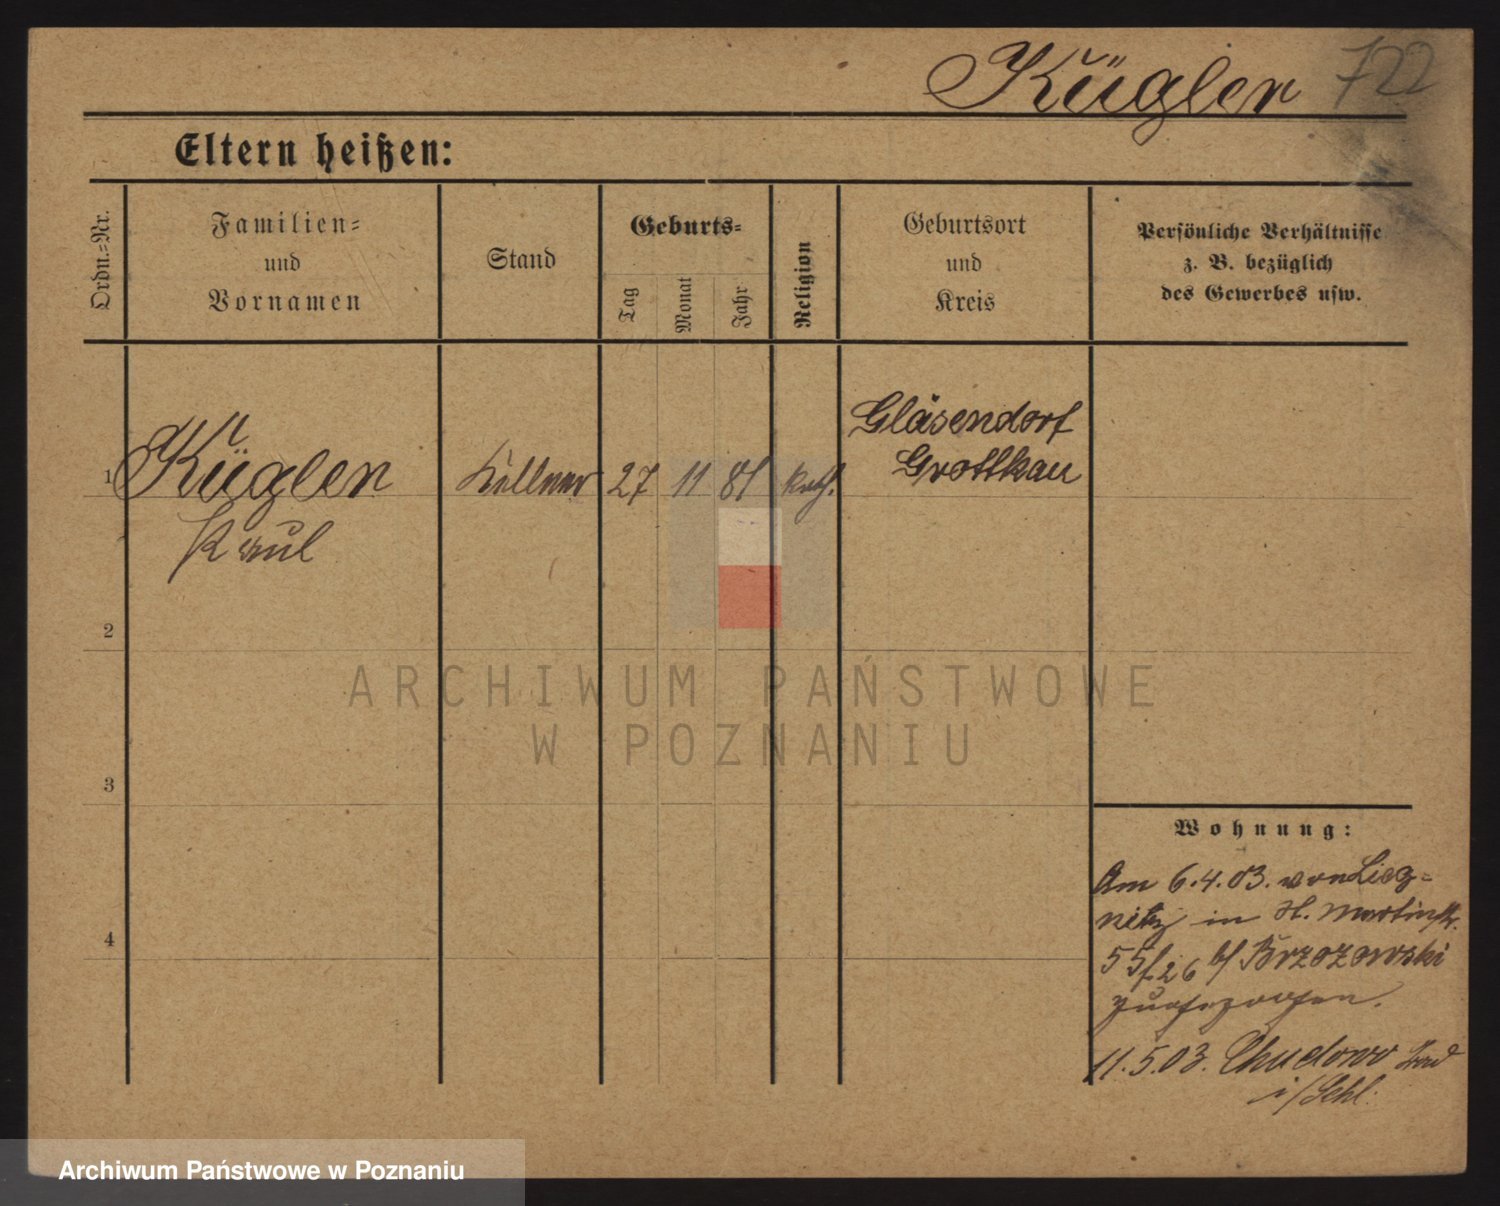 Kügler 722
Eltern heißen:
Ordn.-Nr.
Familien-
und
Vornamen
Stand
Geburts-
Tag
Monat
Jahr
Religion
Geburtsort
und
Kreis
Persönliche Verhältnisse
z. B. bezüglich
des Gewerbes usw.
1 Kügler Kellner 27 11 81 kath. Gläsendorf
Grottkau
Paul
2
3
4
ARCHIWUM PAŃSTWOWE
W POZNANIU
Wohnung:
Am 6.4.03. von Lieg-
nitz in St. Martinstr.
55 26 b/ Brzozowski
zugezogen.
11.5.03. Chudowo Bad
i/Schl.
Archiwum Państwowe w Poznaniu